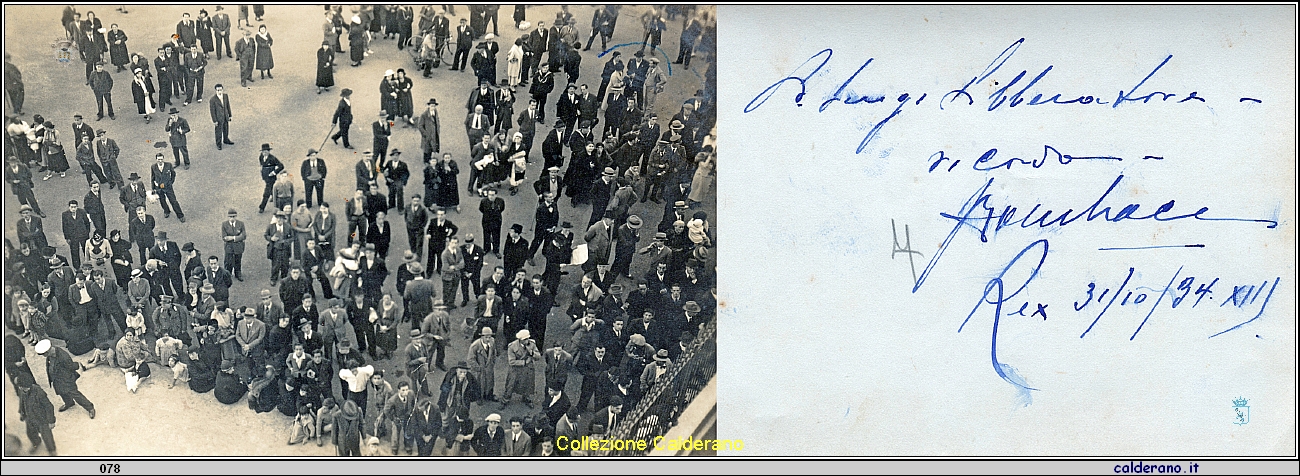 A Luigi Libberatore -
ricordo -
Rex 31/10/34. XIII
4
Collezione Calderano
078
calderano.it